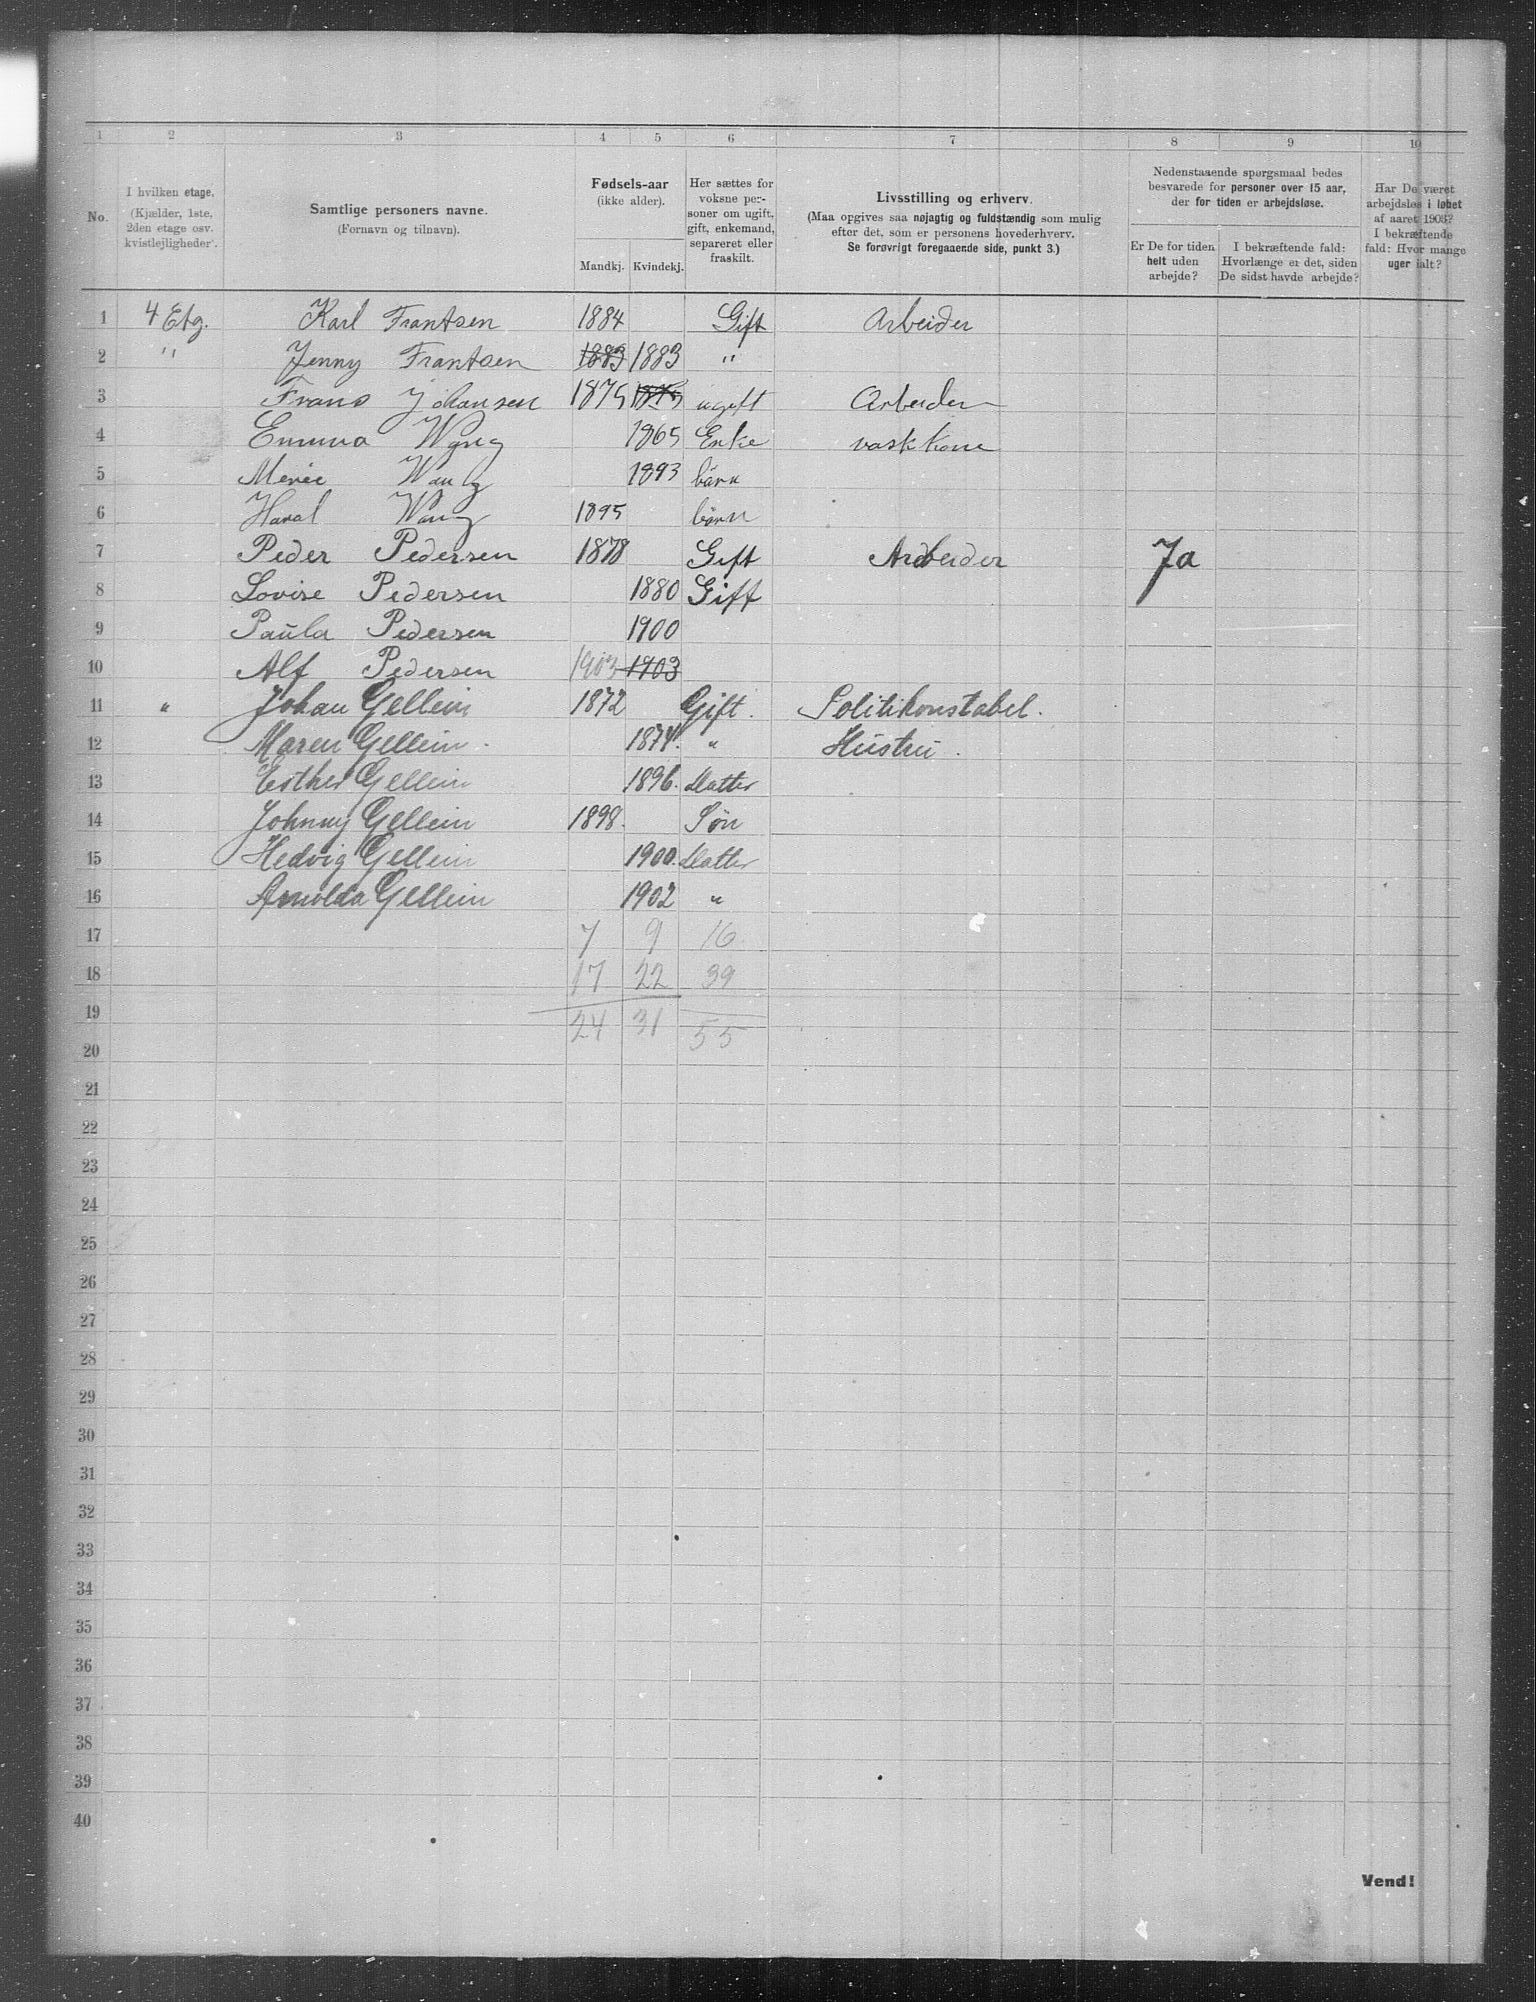 1 2 3 4 5 6 7 8 9 10
No.
I hvilken etage.
(Kjælder, 1ste,
2den etage osv.
kvistlejligheder).
Samtlige personers navne.
(Fornavn og tilnavn).
Fødsels-aar
(ikke alder).
Mandkj. Kvindekj.
Her sættes for
voksne per-
soner om ugift,
gift, enkemand,
separeret eller
fraskilt.
Livsstilling og erhverv.
(Maa opgives saa nøjagtig og fuldstændig som mulig
efter det, som er personens hovederhverv.
Se forøvrigt foregaaende side, punkt 3.)
Nedenstaaende spørgsmaal bedes
besvarede for personer over 15 aar,
der for tiden er arbejdsløse.
Er De for tiden
helt uden
arbejde?
I bekræftende fald:
Hvorlænge er det, siden
De sidst havde arbejde?
Har De været
arbejdsløs i løbet
af aaret 1903?
I bekræftende
fald: Hvor mange
uger ialt?
1 4 Etg. Karl Frantsen 1884 Gift Arbeider
2 " Jenny Frantsen 1883 1883 "
3 Frans Johansen 1875 1875 ugift Arbeider
4 Emma Wang 1865 Enke vaskkone
5 Wang 1893 børn
6 Haral Wang 1895 børn
7 Peder Pedersen 1878 Gift Arbeider Ja
8 Lovise Pedersen 1880 Gift
9 Paula Pedersen 1900
10 Alf Pedersen 1903 1903
11 " Johan Gellein 1872 Gift. Politikonstabel.
12 Maren Gellein. 1874. " Hustru.
13 Esther Gellein 1896. Datter
14 Johnny Gellein 1898. Søn
15 Hedvig Gellein 1900. Datter
16 Arnolda Gellein 1902 "
17 7 9 16
18 17 22 39
19 24 31 55
20
21
22
23
24
25
26
27
28
29
30
31
32
33
34
35
36
37
38
39
40
Vend!